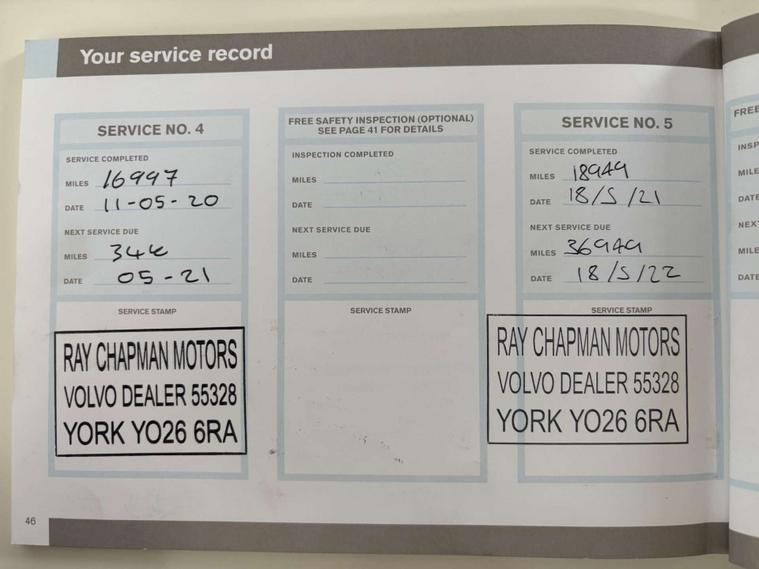 Your service record
SERVICE NO. 4
SERVICE COMPLETED
MILES 16997
DATE 11-05-20
NEXT SERVICE DUE
MILES 34K
DATE 05-21
SERVICE STAMP
RAY CHAPMAN MOTORS
VOLVO DEALER 55328
YORK YO26 6RA
FREE SAFETY INSPECTION (OPTIONAL)
SEE PAGE 41 FOR DETAILS
INSPECTION COMPLETED
MILES
DATE
NEXT SERVICE DUE
MILES
DATE
SERVICE STAMP
SERVICE NO. 5
SERVICE COMPLETED
MILES 18949
DATE 18/5/21
NEXT SERVICE DUE
MILES 36949
DATE 18/5/22
SERVICE STAMP
RAY CHAPMAN MOTORS
VOLVO DEALER 55328
YORK YO26 6RA
FREE
INSP
MILE
DATE
NEXT
MILE
DATE
46